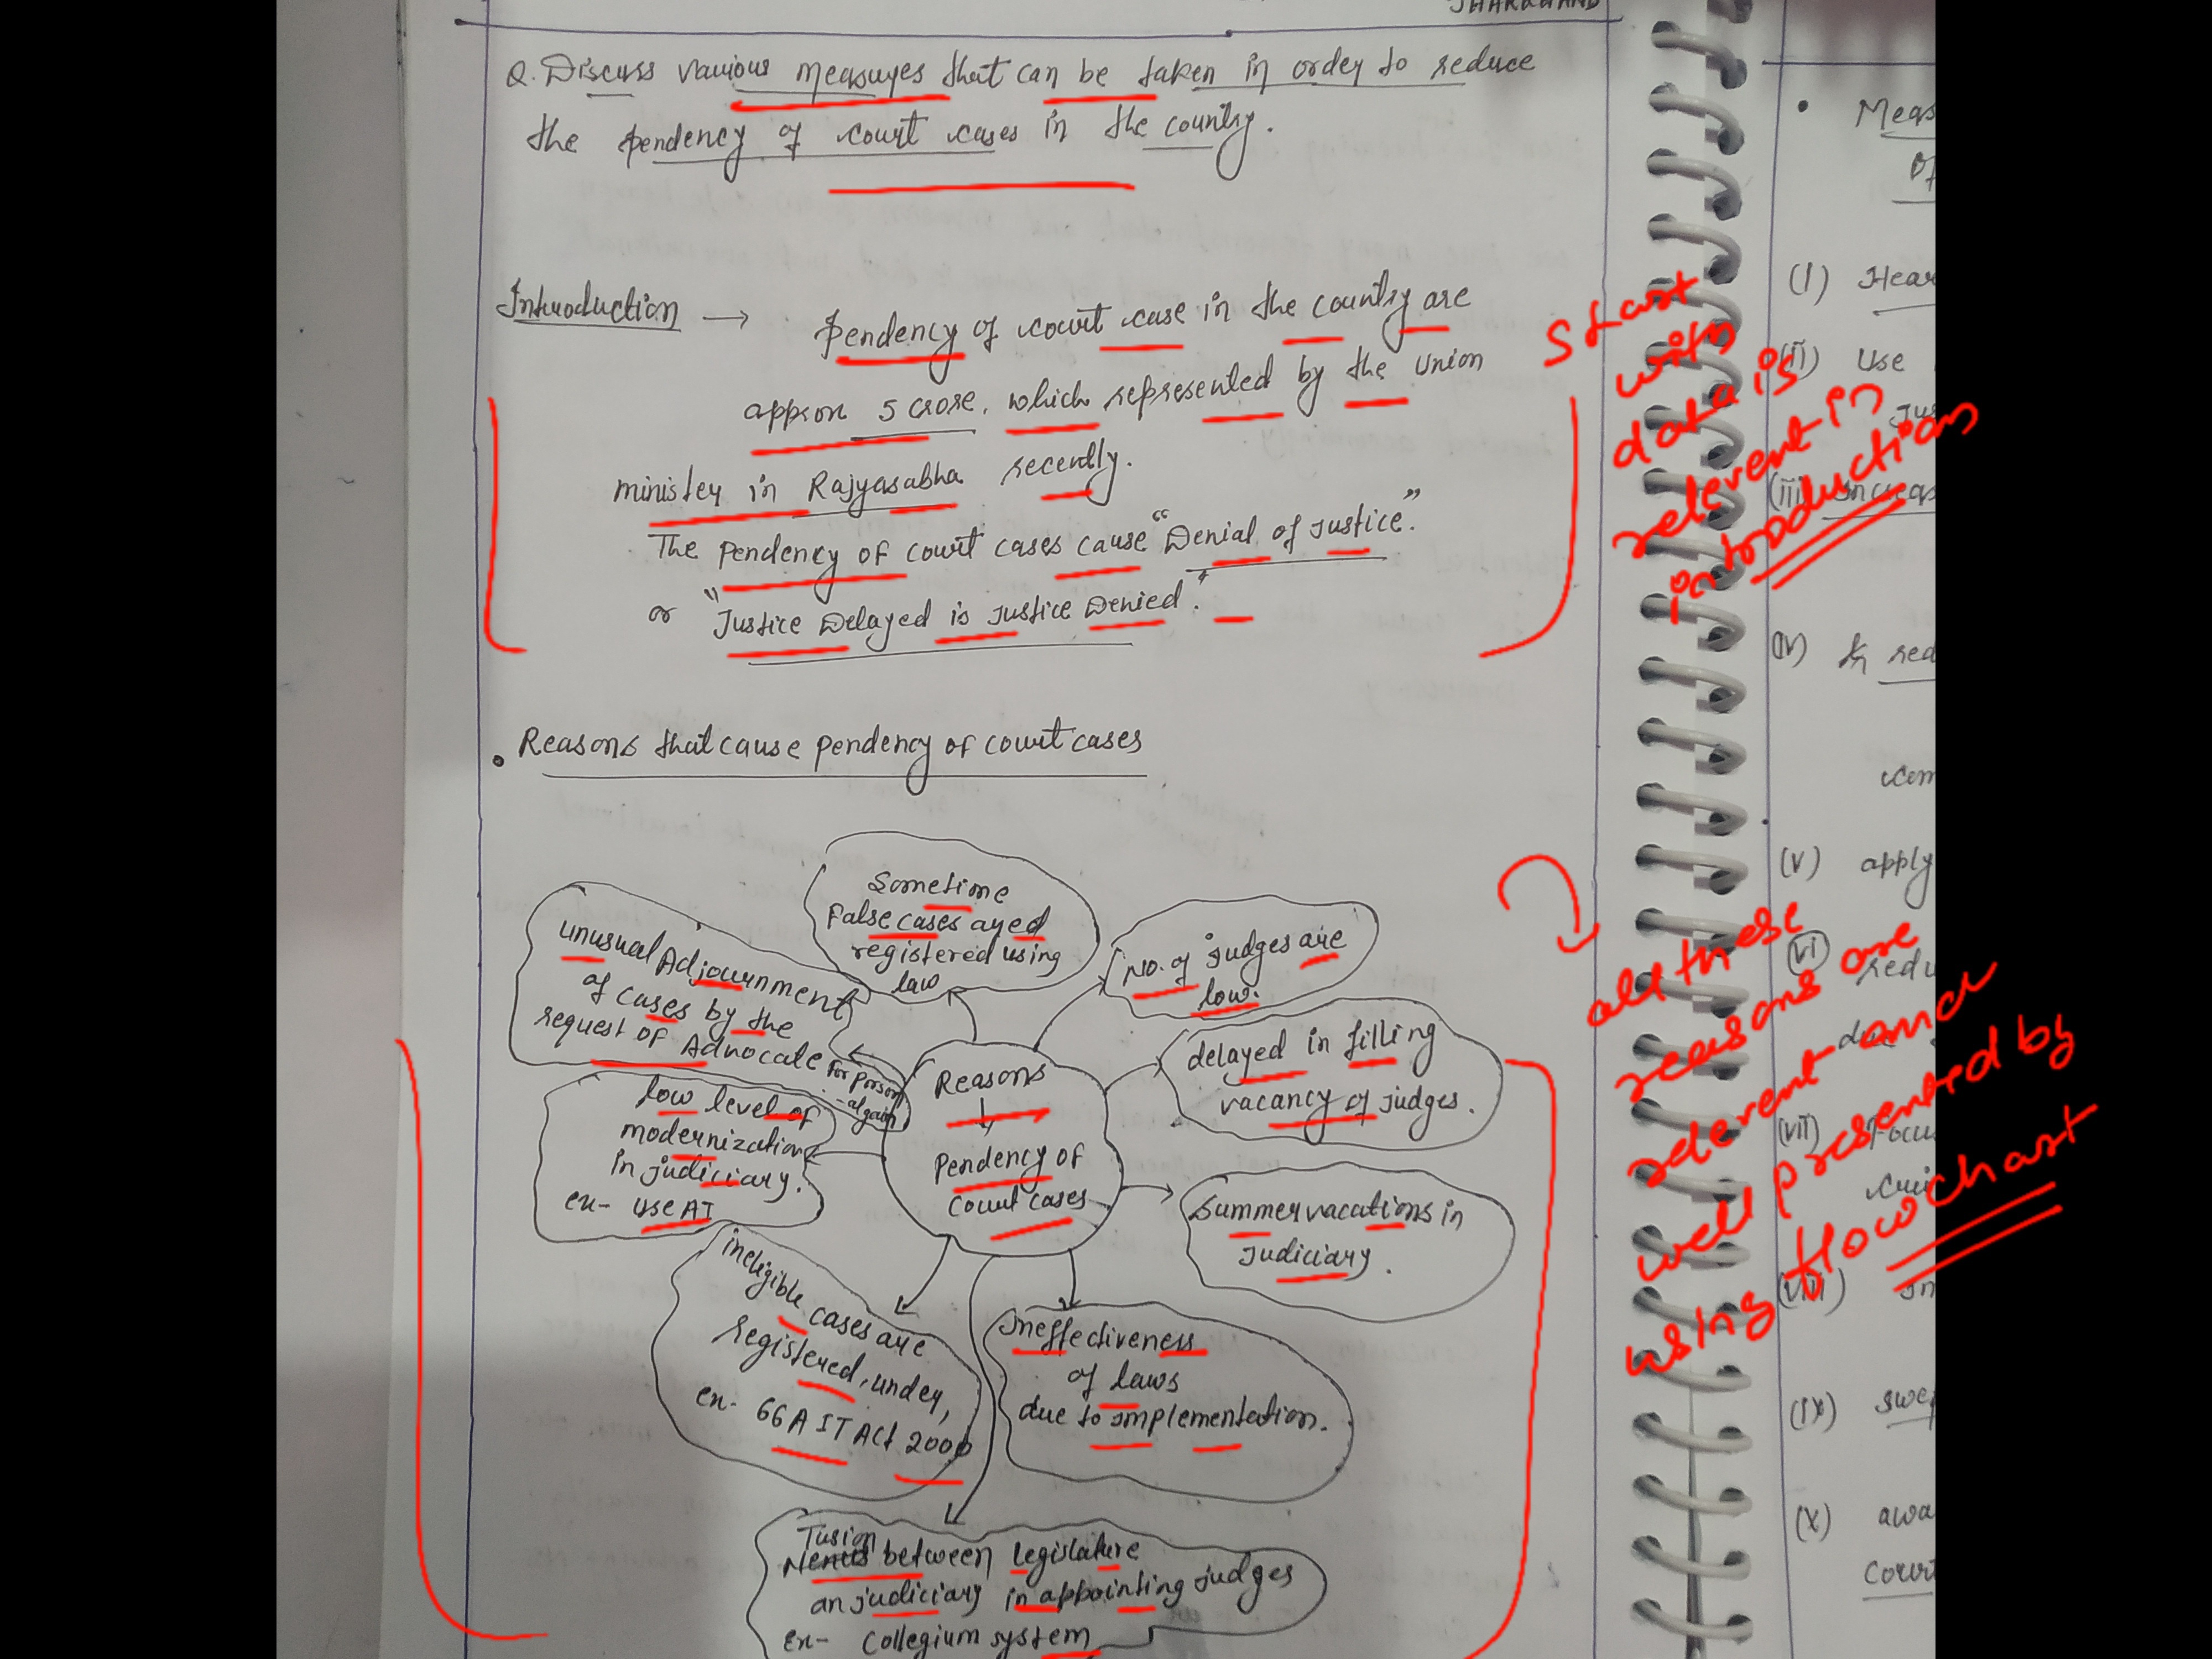 JHARKHAND
Q. Discuss various measures that can be taken in order to reduce
the pendency of court cases in the country.
Introduction → Pendency of court case in the country are
approx 5 crore, which represented by the union
ministry in Rajyasabha recently.
The pendency of court cases cause "Denial of justice".
or "Justice Delayed is Justice Denied".
Start
with
data is
relevent in
introduction
• Reasons that cause pendency of court cases
Sometime
False cases are
registered using
law
No. of Judges are
low.
unusual Adjournment
of cases by the
request of Advocate
for person
-al gain
delayed in filling
vacancy of judges.
Reasons
↓
pendency of
court cases
low level of
modernization
in judiciary.
ex- use AI
Summer vacations in
Judiciary.
ineligible cases are
registered, under,
ex- 66A IT Act 2000
Ineffectiveness
of laws
due to implementation.
Tusion
between legislature
an judiciary in appointing judges
Ex- Collegium system
all these
reasons are
relevent and
well presented by
using flowchart
• Meas
of
(i) Hear
(ii) Use
Jus
(iii) Increas
(iv) red
com
(v) apply
(vi) redu
due
(vii) Focu
(viii) In
(ix) swe
(x) awa
court